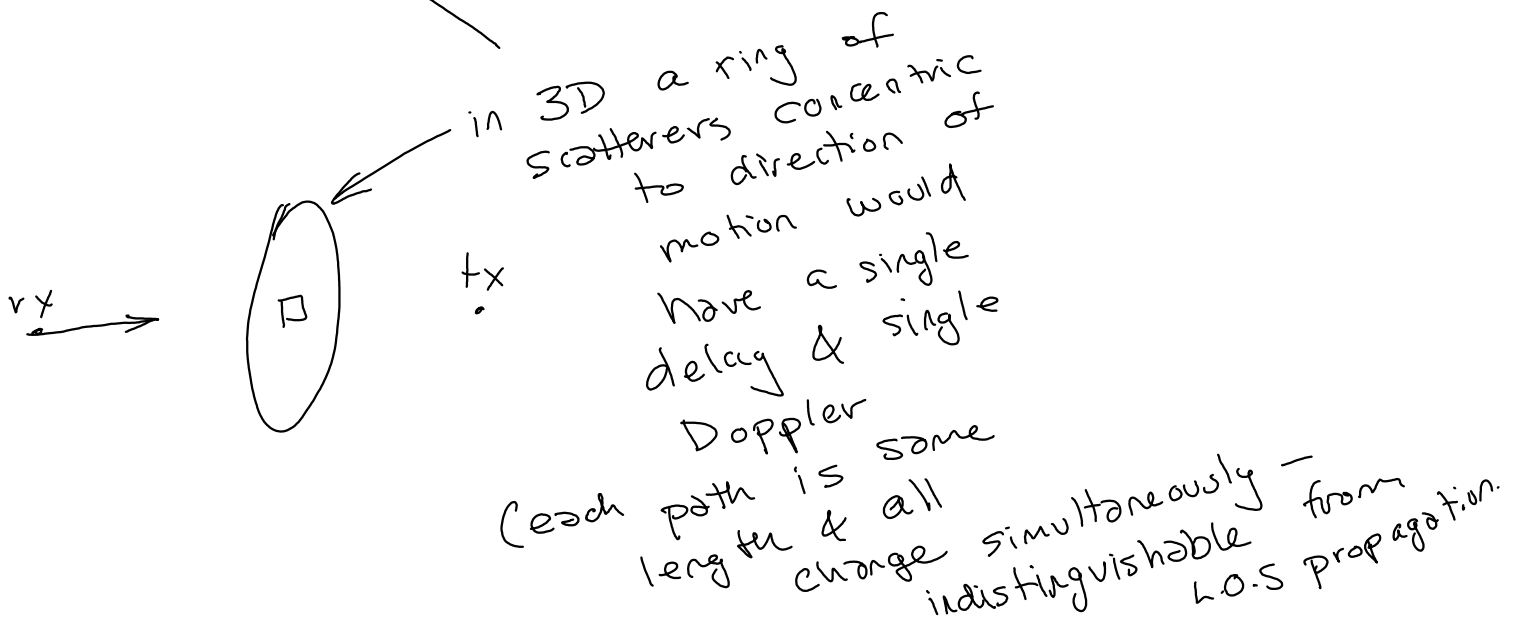 in 3D a ring of
scatterers concentric
to direction of
motion would
have a single
delay & single
Doppler
(each path is same
length & all
change simultaneously –
indistinguishable from
L.O.S propagation.
rx
tx